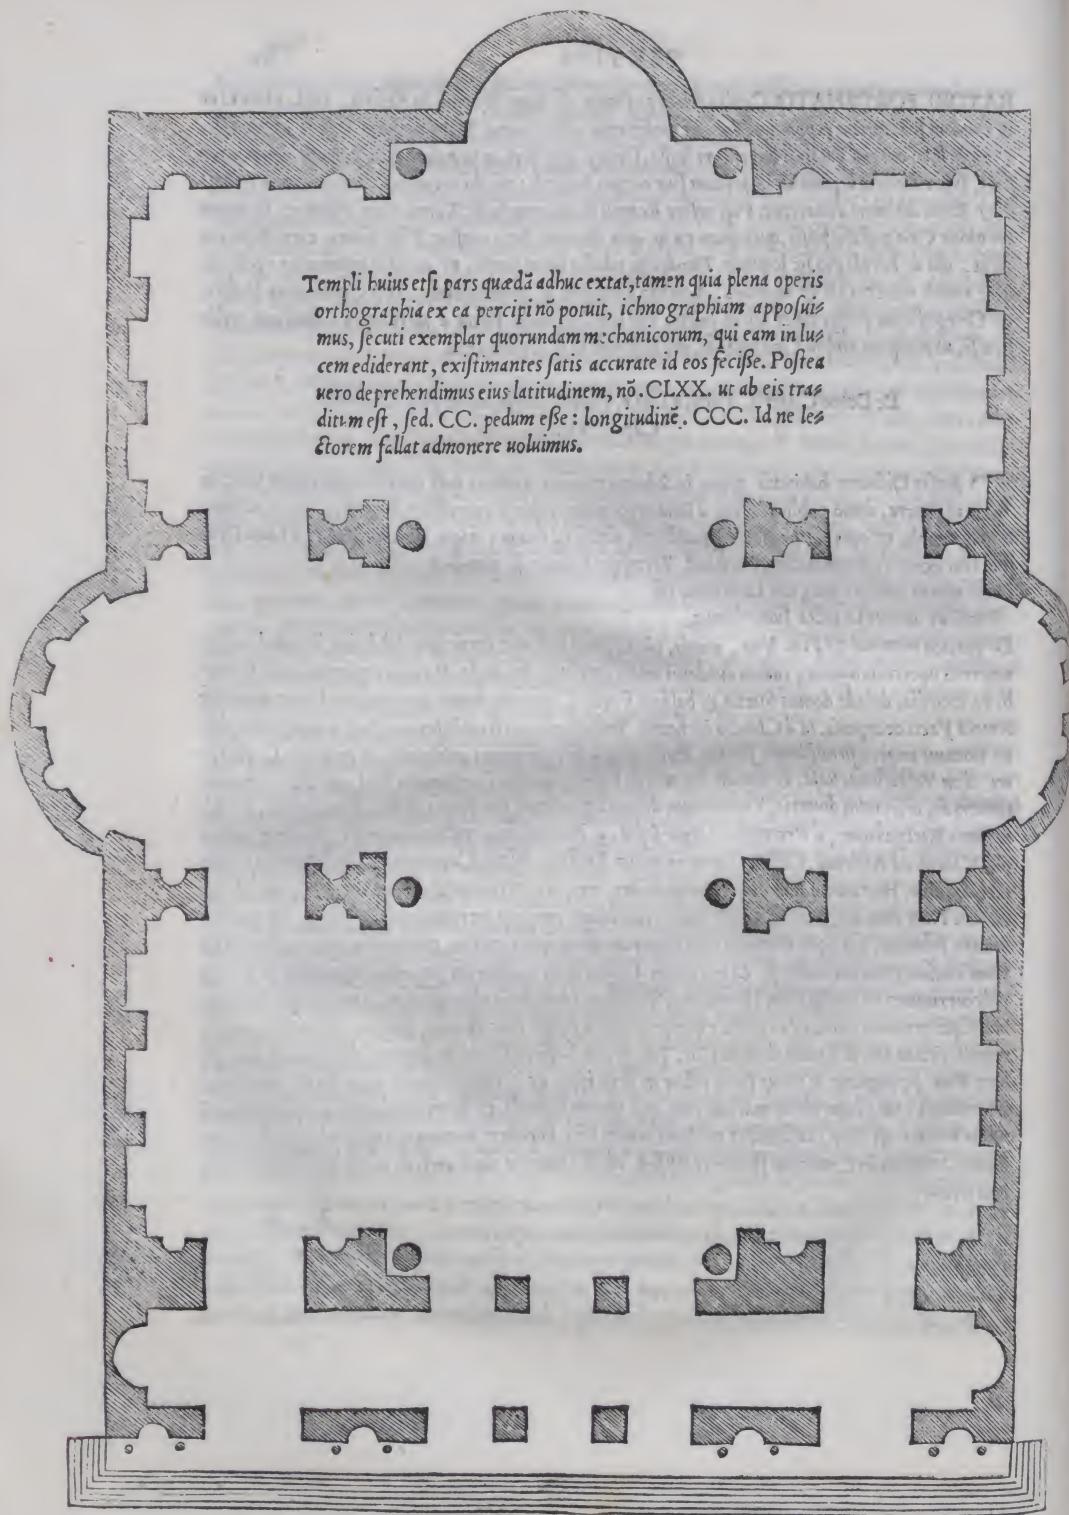 Templi huius etſi pars quædã adhuc extat, tamen quia plena operis
orthographia ex ea percipi nõ potuit, ichnographiam appoſui⸗
mus, ſecuti exemplar quorundam mechanicorum, qui eam in lu⸗
cem ediderant, exiſtimantes ſatis accurate id eos feciſſe. Poſtea
uero deprehendimus eius latitudinem, nõ. CLXX. ut ab eis tra⸗
ditum eſt, ſed. CC. pedum eſſe: longitudinẽ. CCC. Id ne le⸗
ctorem fallat admonere uoluimus.